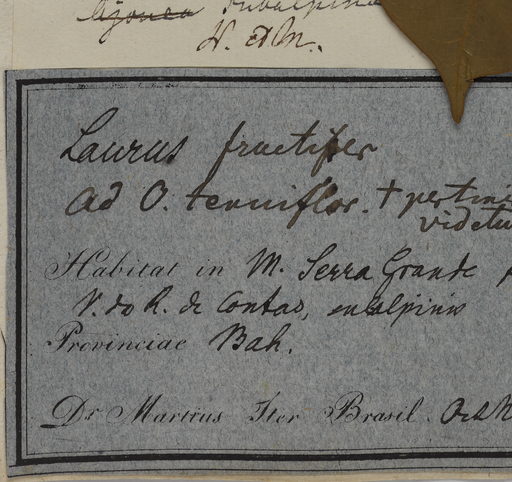 subalpina
Laurus fructifer
ad O. tenuiflor. + pertin
videtu
Habitat in M. Serra Grande
V. do R. de Contas, subalpinis
Provinciae Bah.
Dr Martius Iter Brasil. Oct